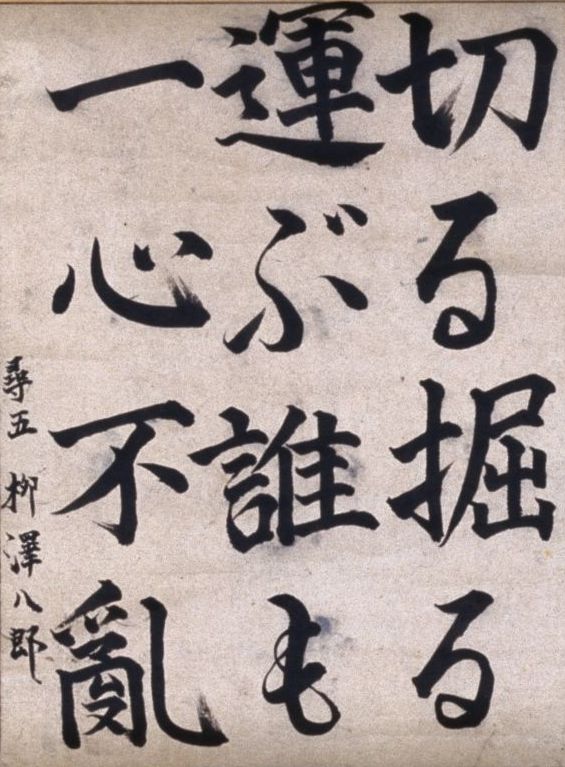 切る掘る
運ぶ誰も
一心不亂
尋五 柳澤八郎